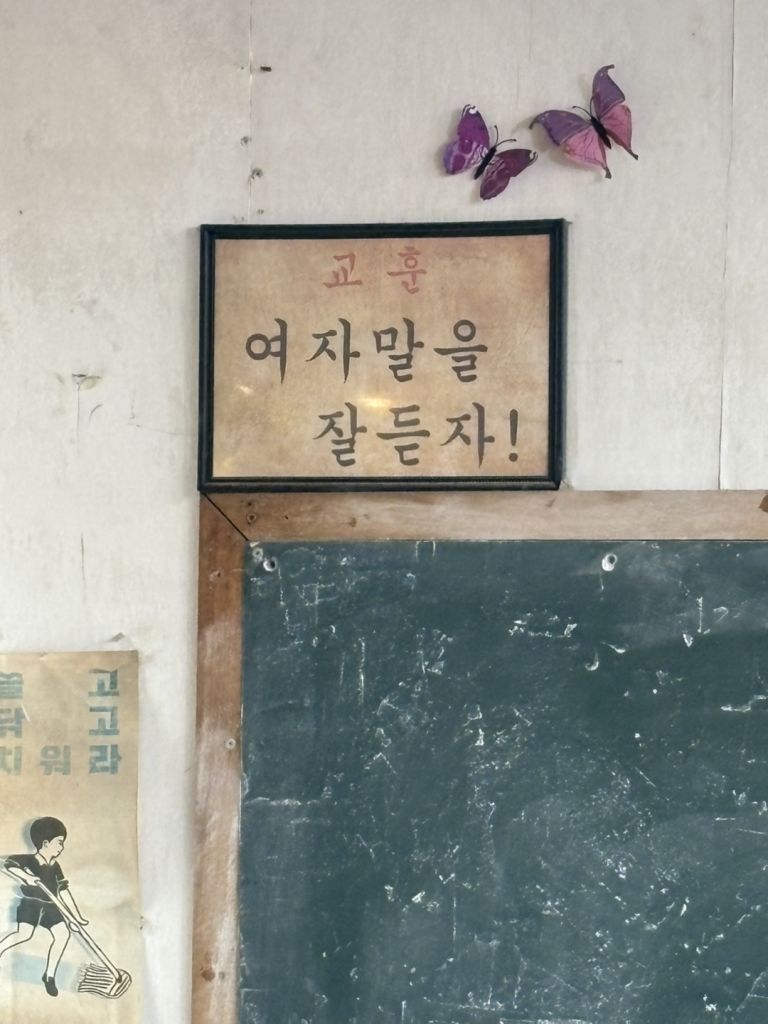 교훈
여자말을
잘듣자!
쓸고
닦고
치워라